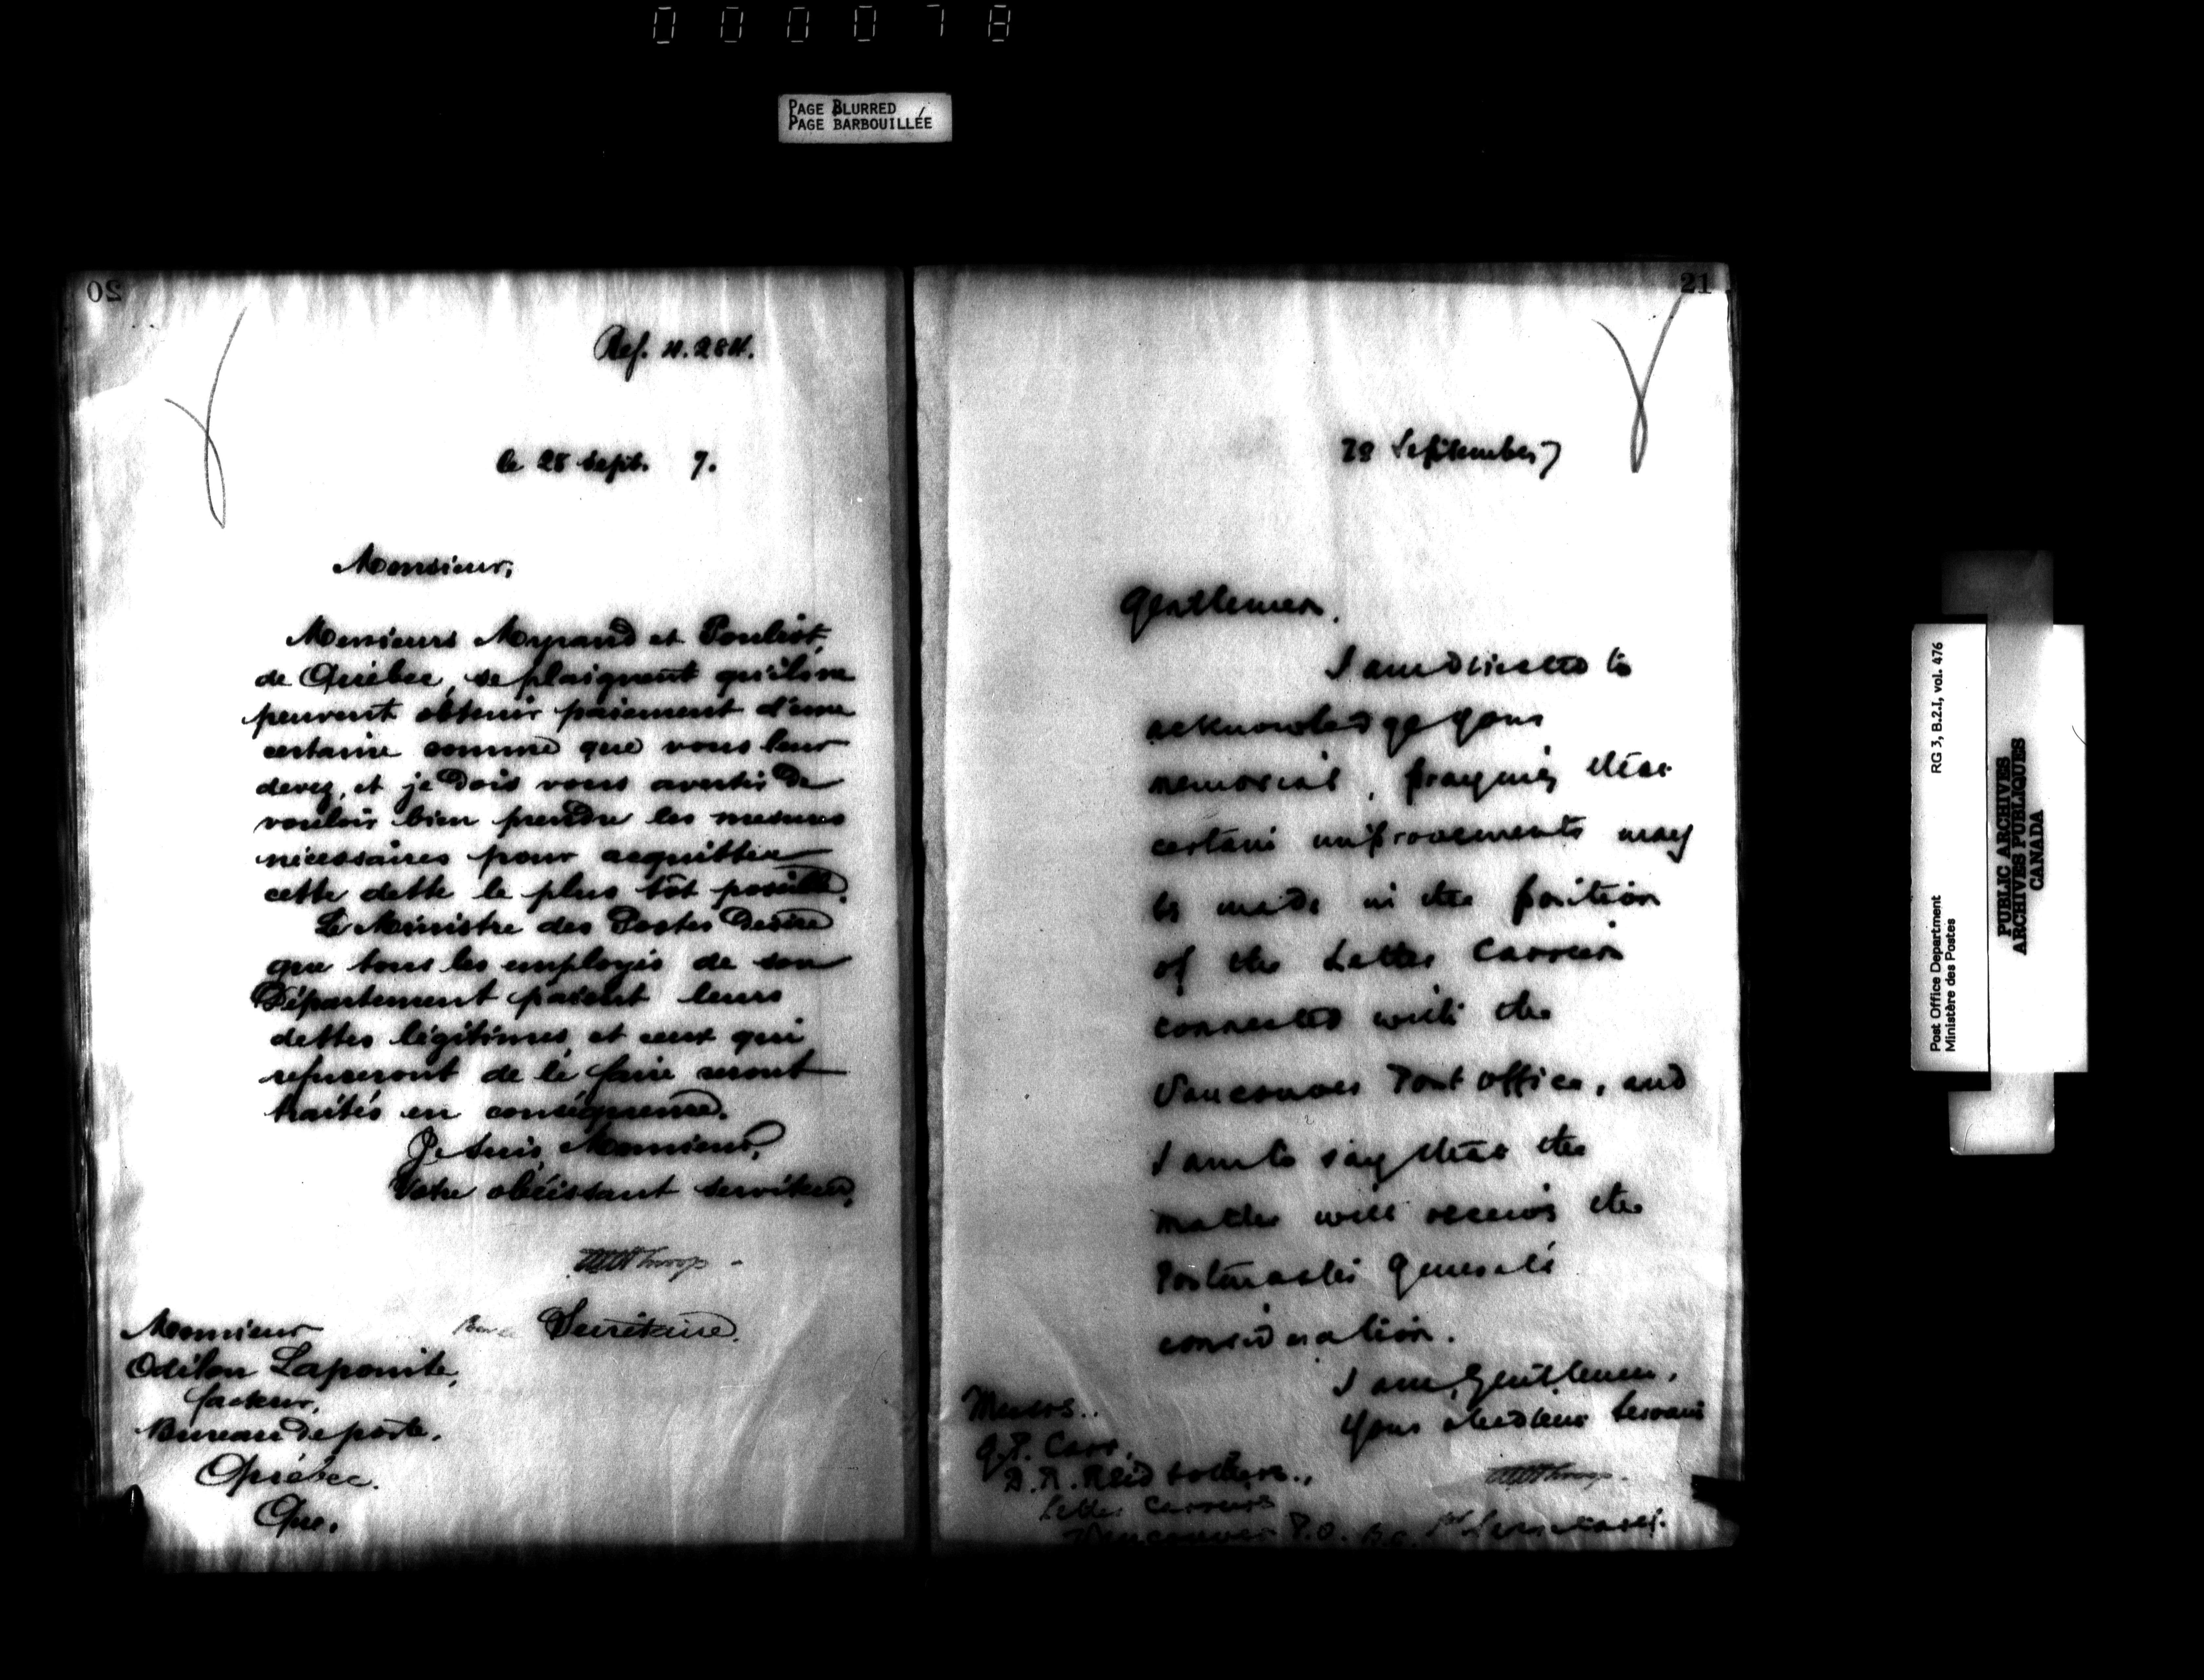 000078
PAGE BLURRED
PAGE BARBOUILLÉE
20
Ref. N. 284.
le 28 Sept. 7.
Monsieur,
Messieurs Myrand et Pouliot,
de Québec, se plaignent qu'ils ne
peuvent obtenir paiement d'une
certaine somme que vous leur
devez, et je dois vous avertir de
vouloir bien prendre les mesures
nécessaires pour acquitter
cette dette le plus tôt possible.
Le Ministre des Postes desire
que tous les employés de son
Département paient leurs
dettes légitimes, et ceux qui
refuseront de le faire seront
traités en conséquence.
Je suis, Monsieur,
Votre obéissant serviteur,
Secrétaire.
Monsieur
Odilon Lapointe,
facteur,
Bureau de poste,
Québec.
Que.
21
28 September 7
Gentlemen.
I am directed to
acknowledge your
memorial, praying that
certain improvements may
be made in the position
of the Letter Carriers
connected with the
Vancouver Post Office, and
I am to say that the
matter will receive the
Postmaster General's
consideration.
I am, Gentlemen,
Your obedient Servant
Messrs.
G.P. Carr,
D.R. Reid & others,
Letter Carriers
Vancouver P.O. B.C.
Post Office Department
Ministère des Postes
RG 3, B.2.I, vol. 476
PUBLIC ARCHIVES
ARCHIVES PUBLIQUES
CANADA